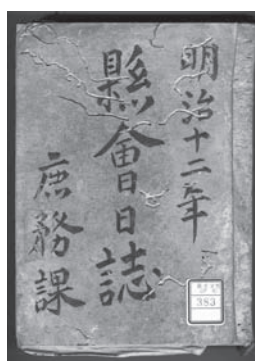 明治十二年
縣會日日誌
庶務課
383